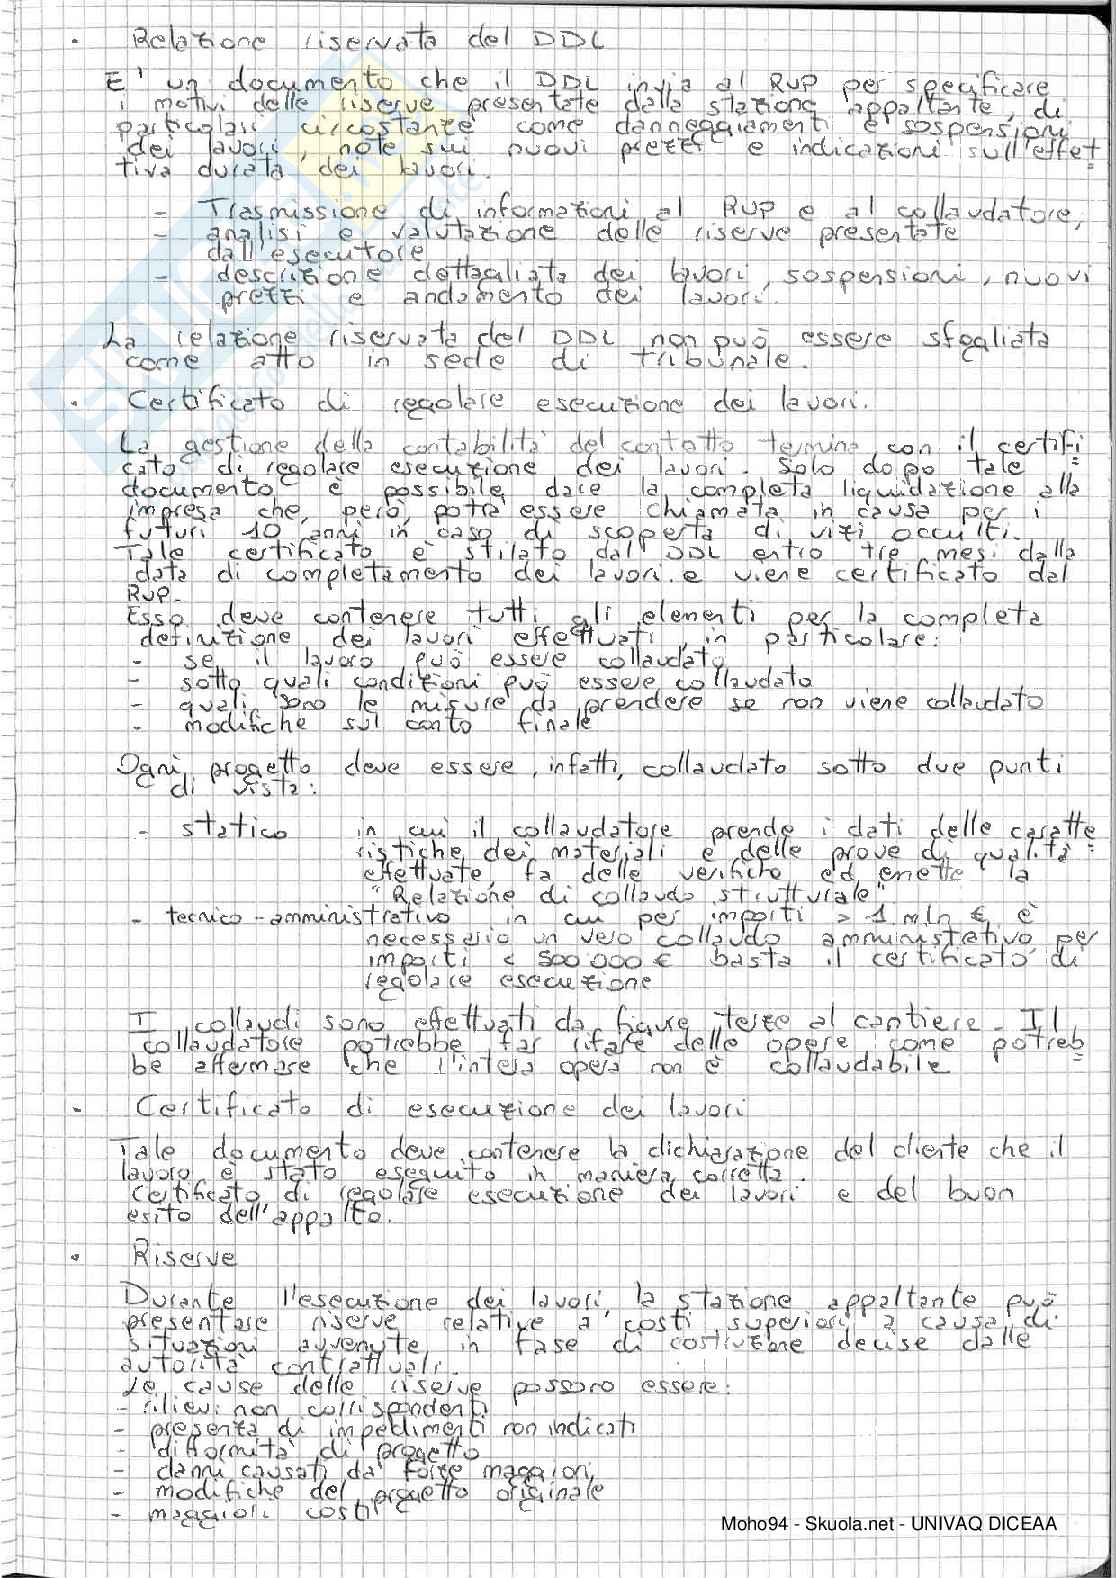 • Relazione riservata del DDL
E' un documento che il DDL invia al RUP per specificare
i motivi delle riserve presentate dalla stazione appaltante, di
particolari circostante come danneggiamenti e sospensioni
dei lavori, note sui nuovi prezzi e indicazioni sull'effet
tiva durata dei lavori.
- Trasmissione di informazioni al RUP e al collaudatore,
- analisi e valutazione delle riserve presentate
dall'esecutore
- descrizione dettagliata dei lavori, sospensioni, nuovi
prezzi e andamento dei lavori.
La relazione riservata del DDL non può essere sfogliata
come atto in sede di tribunale.
• Certificato di regolare esecuzione dei lavori.
La gestione della contabilità del contratto termina con il certifi
cato di regolare esecuzione dei lavori. Solo dopo tale
documento è possibile dare la completa liquidazione alla
impresa che, però, potrà essere chiamata in causa per i
futuri 10 anni in caso di scoperta di vizi occulti.
Tale certificato è stilato dal DDL entro tre mesi dalla
data di completamento dei lavori e viene certificato dal
RUP.
Esso deve contenere tutti gli elementi per la completa
definizione dei lavori effettuati, in particolare:
- se il lavoro può essere collaudato
- sotto quali condizioni può essere collaudato
- quali sono le misure da prendere se non viene collaudato
- modifiche sul conto finale
Ogni progetto deve essere, infatti, collaudato sotto due punti
di vista:
- statico in cui il collaudatore prende i dati delle caratte
ristiche dei materiali e delle prove di qualità
effettuate, fa delle verifiche ed emette la
"Relazione di collaudo strutturale"
- tecnico-amministrativo in cui per importi > 1 mln € è
necessario un vero collaudo amministrativo per
importi < 500'000 € basta il certificato di
regolare esecuzione
I collaudi sono effettuati da figure terze al cantiere. Il
collaudatore potrebbe far rifare delle opere come potreb
be affermare che l'intera opera non è collaudabile
• Certificato di esecuzione dei lavori
Tale documento deve contenere la dichiarazione del cliente che il
lavoro è stato eseguito in maniera corretta.
Certificato di regolare esecuzione dei lavori e del buon
esito dell'appalto.
• Riserve
Durante l'esecuzione dei lavori, la stazione appaltante può
presentare riserve relative a costi superiori a causa di
situazioni avvenute in fase di costruzione decise dalle
autorità contrattuali.
Le cause delle riserve possono essere:
- rilievi non corrispondenti
- presenza di impedimenti non indicati
- difformità di progetto
- danni causati da forze maggiori
- modifiche del progetto originale
- maggiori costi
Moho94 - Skuola.net - UNIVAQ DICEAA